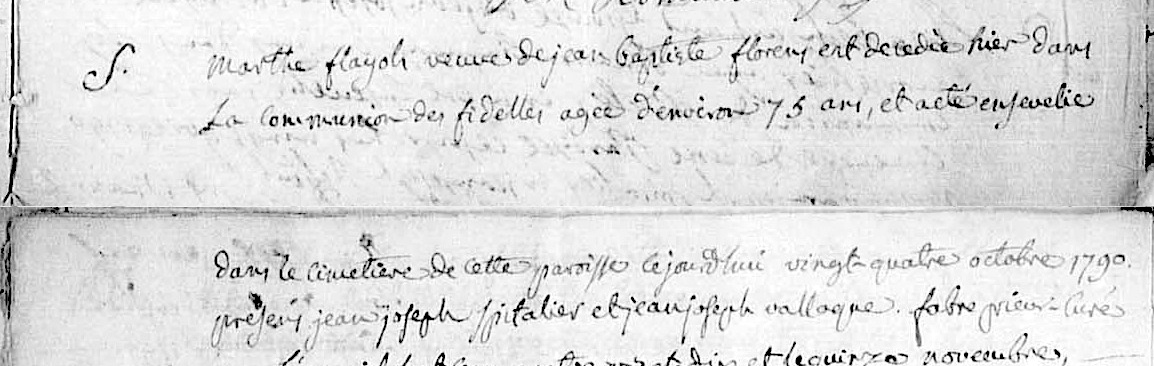 S. marthe flayols veuve de jean baptiste florens est decedée hier dans
La communion des fidelles agée d'environ 75 ans, et a eté ensevelie
dans le cimetiere de cette paroisse cejourd'hui vingt-quatre octobre 1790.
présens jean joseph spitalier et jean joseph vallaque. fabre prieur-curé
et le quinze novembre,